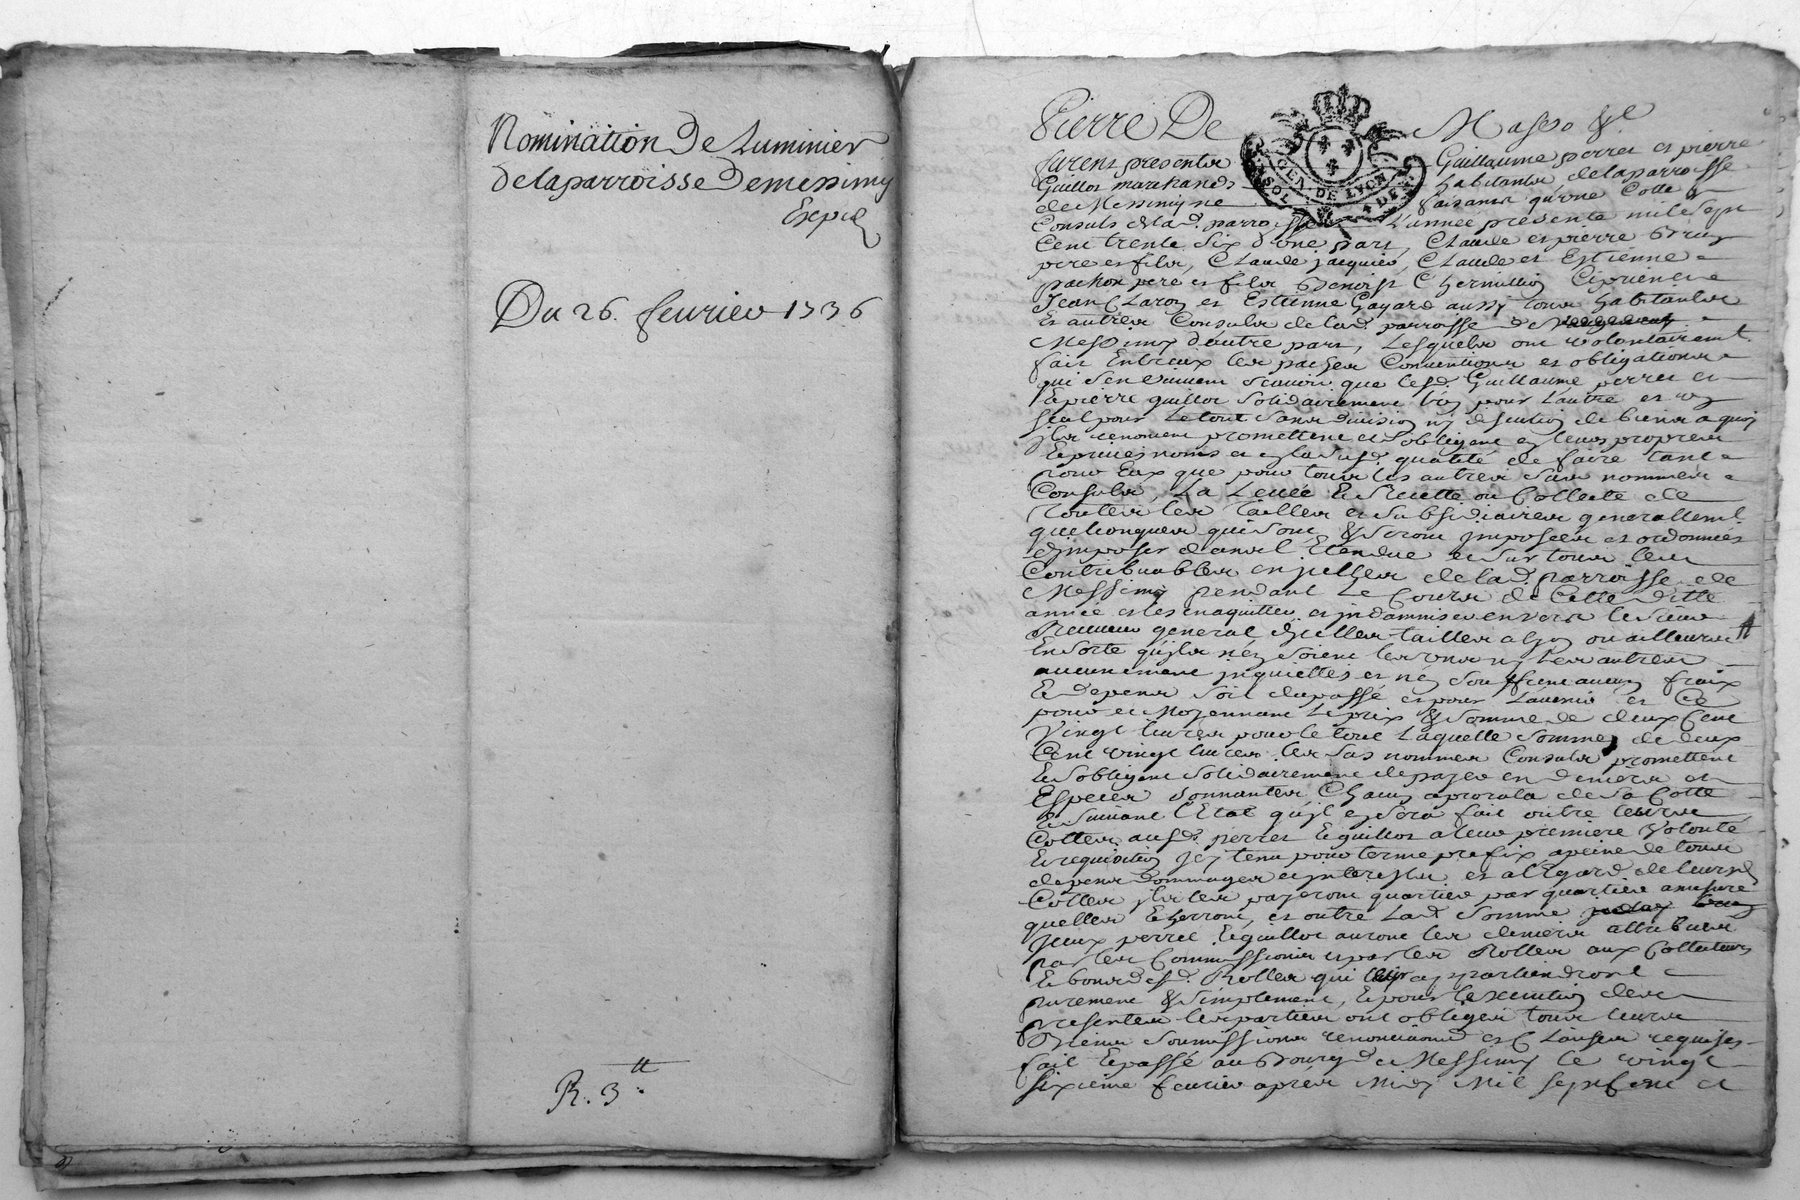 Nomination De Luminier
de la parroisse de messimy
Exped
Du 26. feurier 1736
R. 3.tt
Pierre De
GEN. DE LYON
furent presents Guillaume perret et pierre
Guillot marchands habitants de la parroisse
de Messimy ne faisants qu'une Cotte
Consuls de lad. parroisse L'année presente mil sept
Cent trente six d'une part, Claude et pierre
pere et fils, Claude jacquier, Claude et Estienne
pere et fils Benoist
Jean et Estienne Gayard aussy tous habitants
Et autres Consuls de lad. parroisse de
Messimy d'autre part, Lesquels ont volontairemt.
fait Entreux les paches Conventions et obligations
qui s'en suivent scavoir que lesd. Guillaume perret et
pierre guillot solidairement l'un pour l'autre et un
seul pour Le tout sans division ny discution de biens a quoy
ils renoncent promettent et s'obligent en leurs propres
Et privés noms et en lad. qualité de faire tant
pour Eux que pour tous les autres sus nommés
Consuls, La Levée Et Recette ou Collecte de
Toutes les Tailles et subsidiaires generallemt.
quelconques qui sont & seront imposées et ordonnées
d'imposer dans L'Etendue et sur tous les
Contribuables de lad. parroisse de
Messimy pendant Le Cours de Cette ditte
année et les en acquitter et indamniser envers le sieur
Receveur general desdittes tailles a Lyon ou ailleurs
En sorte qu'ils n'en soient les uns ny les autres
aucunement inquiettés et n'en souffrent aucuns fraix
Et depens soit du passé et pour L'avenir et Ce
pour et Moyennant Le prix & somme de deux Cent
Vingt livres pour le tout Laquelle somme de deux
Cent vingt livres les sus nommés Consuls promettent
Et s'obligent solidairement de payer en deniers et
Especes sonnantes Chacun a prorata de sa Cotte
Et suivant L'Etat qu'il en sera fait outre leurs
Cottes ausd. perret Et guillot a leur premiere Volonté
Et requisition icy tenu pour terme prefix a peine de tous
depens dommages et interests et a L'Egard de leursd.
Cottes ils les payeront quartier par quartier a mesure
quelles Echerront, et outre Lad. somme
perret Et guillot auront les deniers attribués
par les Commissions et par les Rolles aux Collecteurs
Rolles qui leur appartiendront
purement & simplement, Et pour L'execution des
presentes les parties ont obligés tous leurs
Biens soumissions renonciations et Clauses requises
fait Et passé au Bourg de Messimy le vingt
sixieme feurier apres Midy Mil sept Cent et